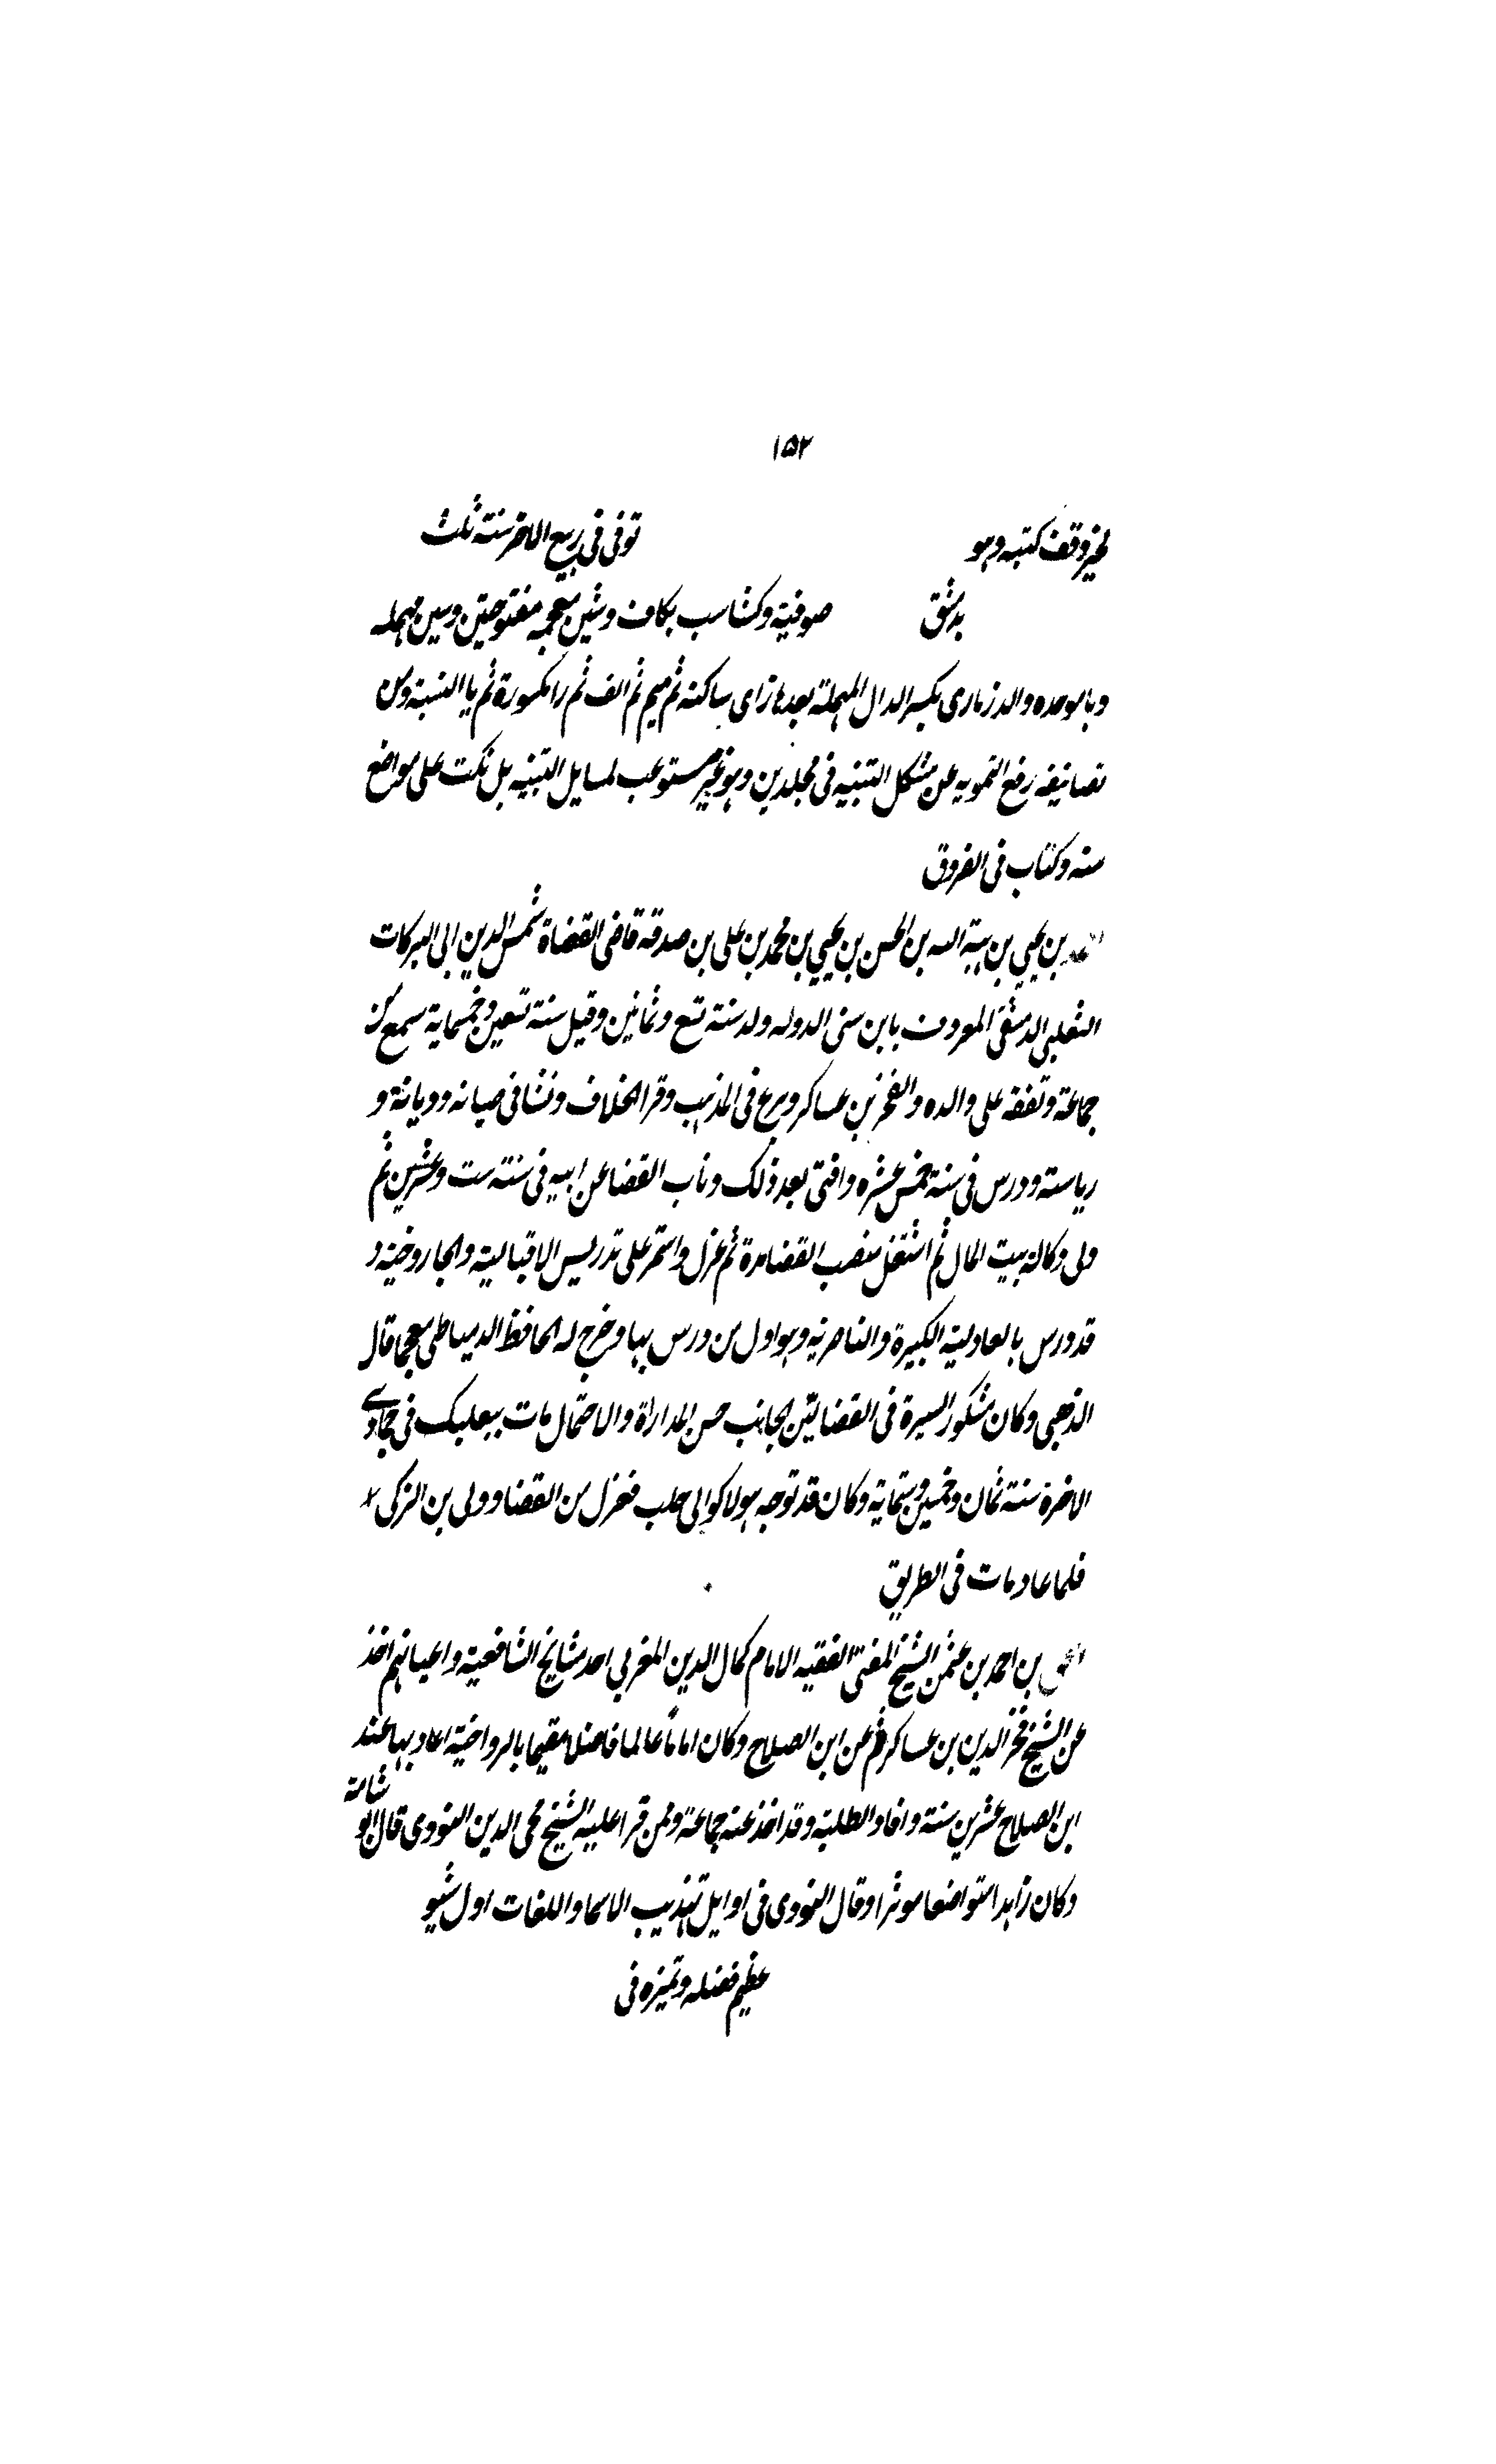 ١٥٢
لخير وقف كتبه وهو توفى فى ربيع الاخر سنة ثلث
بدمشق صوفية وكشاسب بكاف وشين معجمه مفتوحتين وسين مهمله
وبا موحده والدزمارى بكسر الدال المهملة بعدها زاى ساكنه ثم ميم ثم الف ثم را مكسورة ثم يا النسبة ومن
تصانيفه رفع التمويه عن مشكل التنبيه فى مجلدين وهو غير مستوعب لمسايل التنبيه بل نكت على مواضع
منه وكتاب فى الفروق
احمد بن يحيى بن هبة الله بن الحسن بن يحيى بن محمد بن على بن صدقه قاضى القضاة شمس الدين ابى البركات
الثعلبى الدمشقى المعروف بابن سنى الدوله ولد سنة تسع وثمانين وقيل سنة تسعين وخمسماية سمع من
جماعة وتفقه على والده والفخر بن عساكر وبرع فى المذهب وقرا الخلاف ونشا فى صيانه وديانة و
رياسته ودرس فى سنة خمس عشره وافتى بعد ذلك وناب القضا عن ابيه فى سنة ست وعشرين ثم
ولى وكالة بيت المال ثم اشتغل منصب القضا مدة ثم عزل واستمر على تدريس الاقبالية والجاروخية و
قد درس بالعادلية الكبيرة والناصرية وهو اول من درس بها وخرج له الحافظ الدمياطى معجما قال
الذهبى وكان مشكور السيرة فى القضا لين الجانب حسن المداراة والاحتمال مات ببعلبك فى جمادى
الاخرة سنة ثمان وخمسين وستماية وكان قد توجه هولاكو الى حلب فعزل من القضا وولى بن الزكى
فلما عاد مات فى الطريق
اسحق بن احمد بن عثمن الشيخ المفتى الفقيه الامام كمال الدين المغربى احد مشايخ الشافعية واعيانهم اخذ
عن الشيخ فخر الدين بن عساكر ثم عن ابن الصلاح وكان اماما عالما فاضلا مقيما بالرواحية اعاد بها عند
ابن الصلاح عشرين سنة وافاد الطلبة وقد اخذ عنه جماعة وممن قرا عليه الشيخ محى الدين النووى قال ابو شامة
وكان زاهدا متواضعا موثرا وقال النووى فى اوايل تهذيب الاسما واللغات اول شيو
عظيم فضله وتميزه فى